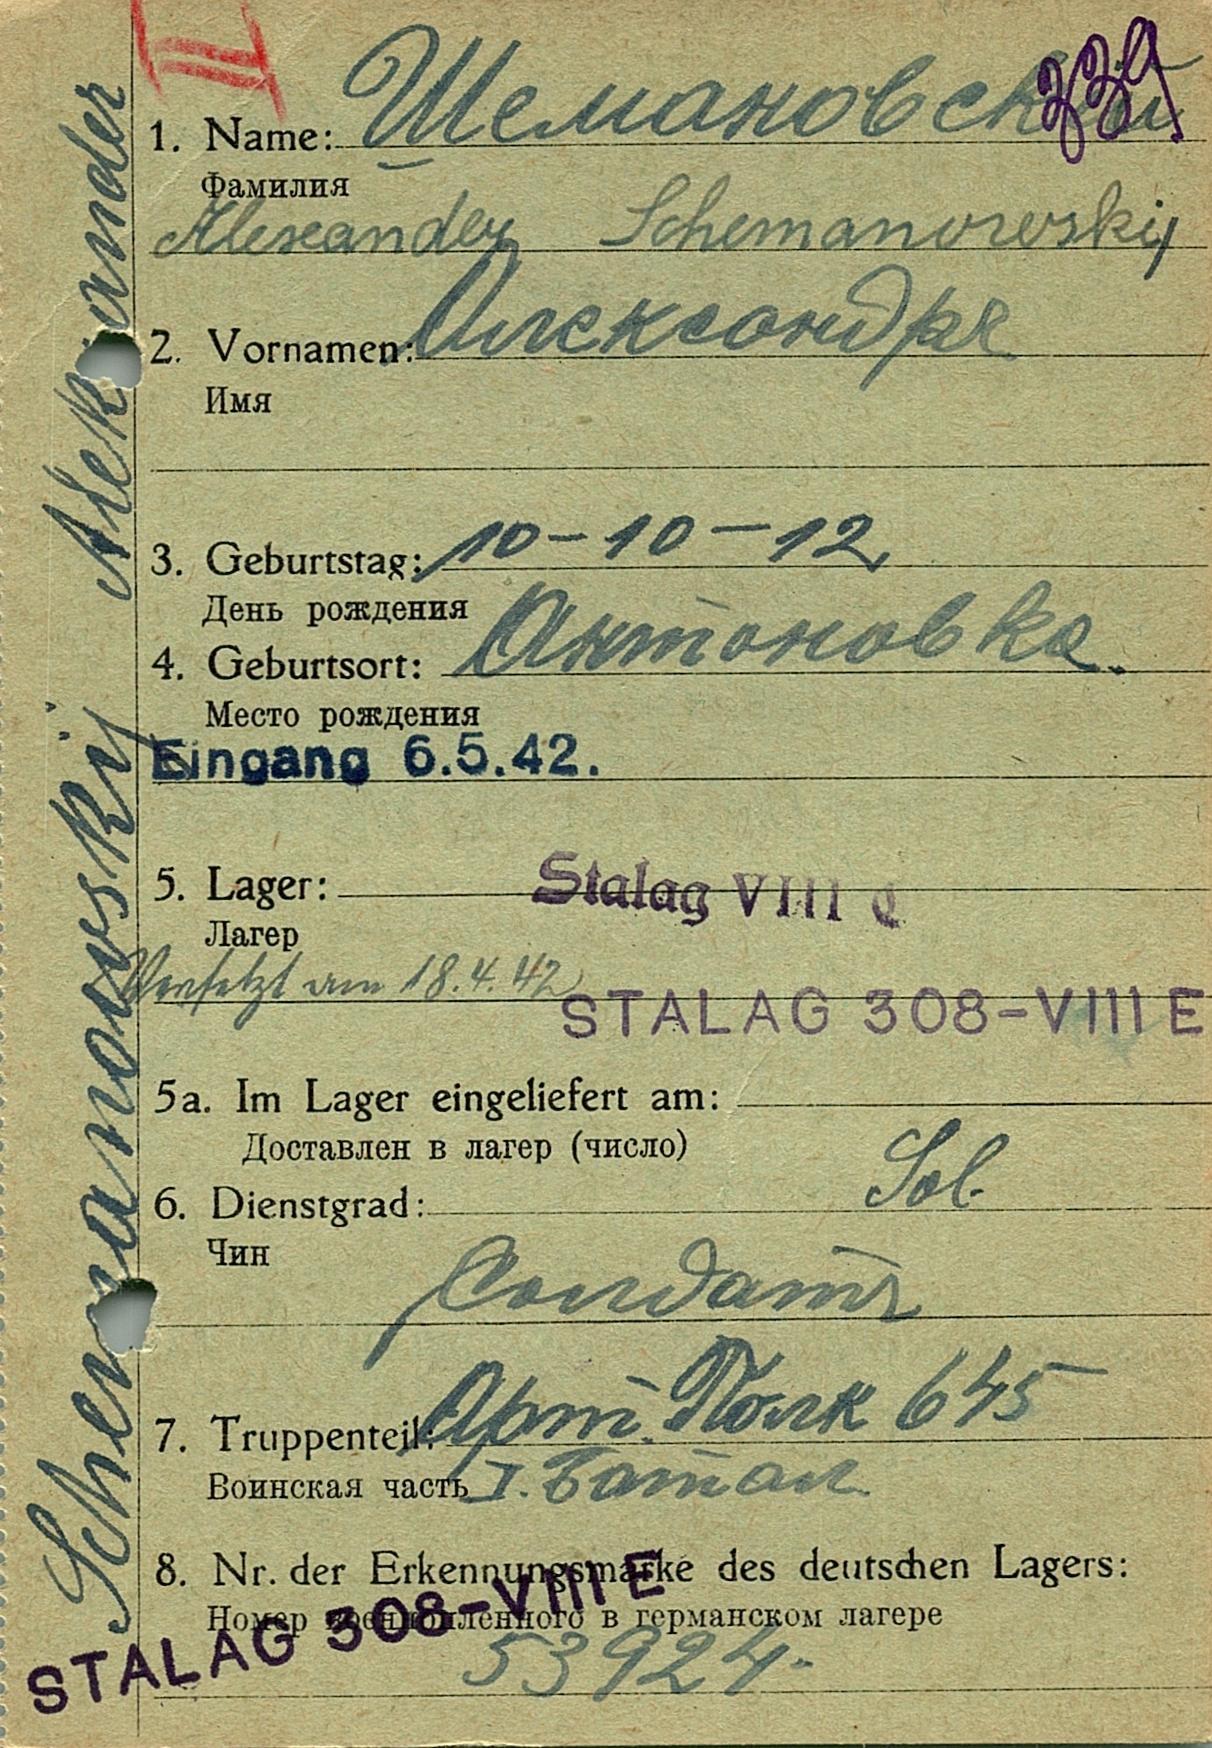 II
339
1. Name: Шемановский
Фамилия
Alexander Schemanowskij
2. Vornamen: Александръ
Имя
3. Geburtstag: 10-10-12
День рождения
4. Geburtsort: Антоновка.
Место рождения
Eingang 6.5.42.
5. Lager: Stalag VIII C
Лагер
Versetzt am 18.4.42
STALAG 308-VIII E
5a. Im Lager eingeliefert am:
Доставлен в лагер (число)
6. Dienstgrad: Sol.
Чин
Солдатъ
7. Truppenteil: Арт. Полк 645
Воинская часть I. Батал.
8. Nr. der Erkennungsmarke des deutschen Lagers:
Номер военнопленного в германском лагере
STALAG 308-VIII E
53924.
Schemanowskij Alekxander